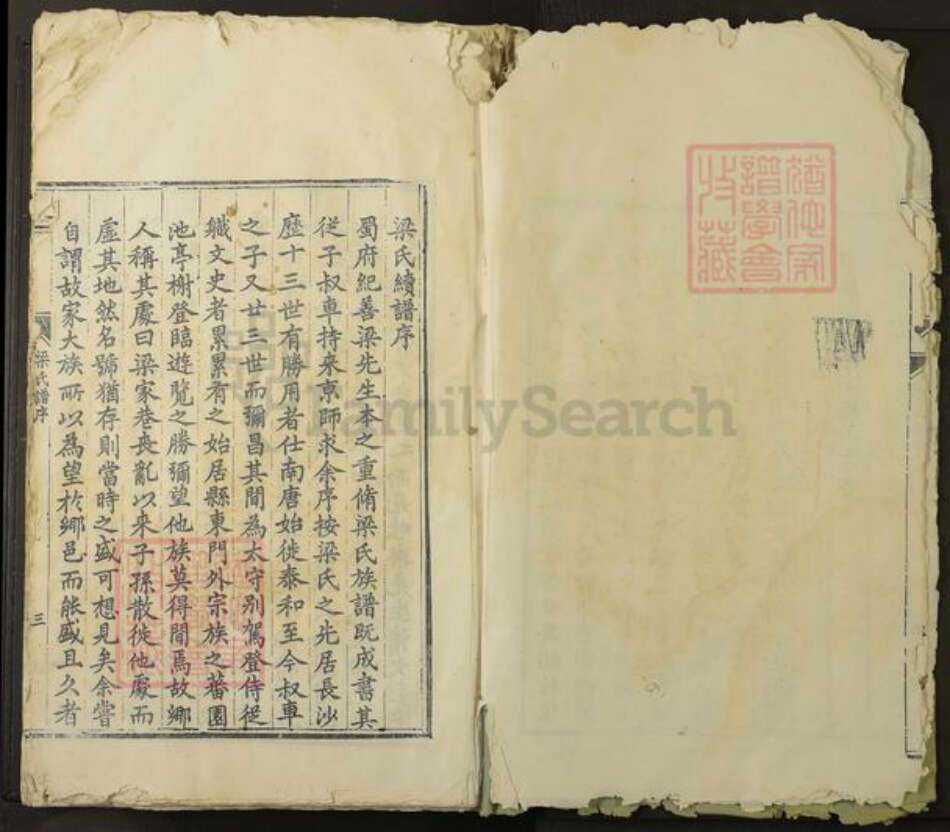 譜學會
收藏
梁氏續譜序
蜀府紀善梁先生本之重脩梁氏族譜既成書其
從子叔車持來京師求余序按梁氏之先居長沙
歷十三世有勝用者仕南唐始徙泰和至今叔車
之子又廿三世而彌昌其間為太守别駕登侍從
軄文史者累累有之始居縣東門外宗族之蕃園
池亭榭登臨遊覽之勝彌望他族莫得間焉故鄉
人稱其處曰梁家巷喪亂以來子孫散徙他處而
虛其地然名號猶存則當時之盛可想見矣余嘗
自謂故家大族所以為望於鄉邑而能盛且久者
梁氏譜序
三
FamilySearch